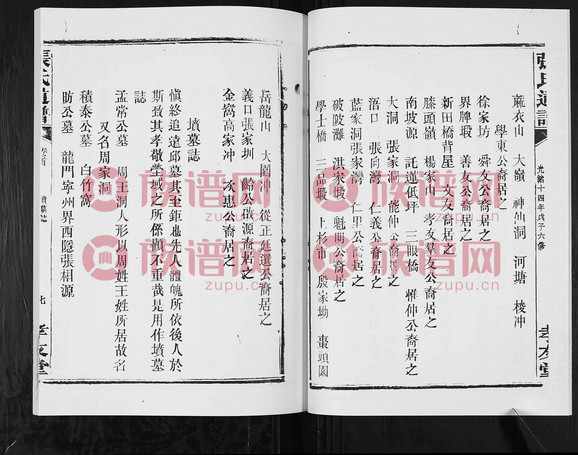 張氏通譜
光緒十四年戊子六修
孝友堂
蔴衣山 大嶺 神仙洞 河塘 棱冲
學東公裔居之
徐家坊 舜友公裔居之
界牌塅 善友公裔居之
新田橋背屋 文友公裔居之
膝頭嶺 楊家山 孝友羣友公裔居之
南坡源 託蓮低坪 三眼橋 惟仲公裔居之
大洞 張家洞 能仲公裔居之
浯口 張向灣 仁義公裔居之
藍家洞張家灣 仁公裔居之
破陂灘 洪家塅 魁明公裔居之
學士橋 三品塅 上杉市 殷家坳 棗頭園
岳龍山 大園冲 從正廷選公裔居之
義口張家圳 餘公啟源裔居之
金窩高家冲 次惠公裔居之
墳墓誌
愼終追遠邱墓其至鉅也先人體魄所依後人於
斯致其孝敬塋域之所係顧不重哉是用作墳墓
誌
孟常公墓 周王洞人形以周姓王姓所居故名
又名周家洞
積泰公墓 白竹窩
昉公墓 龍門寧州界西隱張相源
張氏通譜
墳墓誌
七
孝友堂
族谱网
zupu.cn
族谱网
zupu.cn
族谱网
zupu.cn
族谱网
zupu.cn